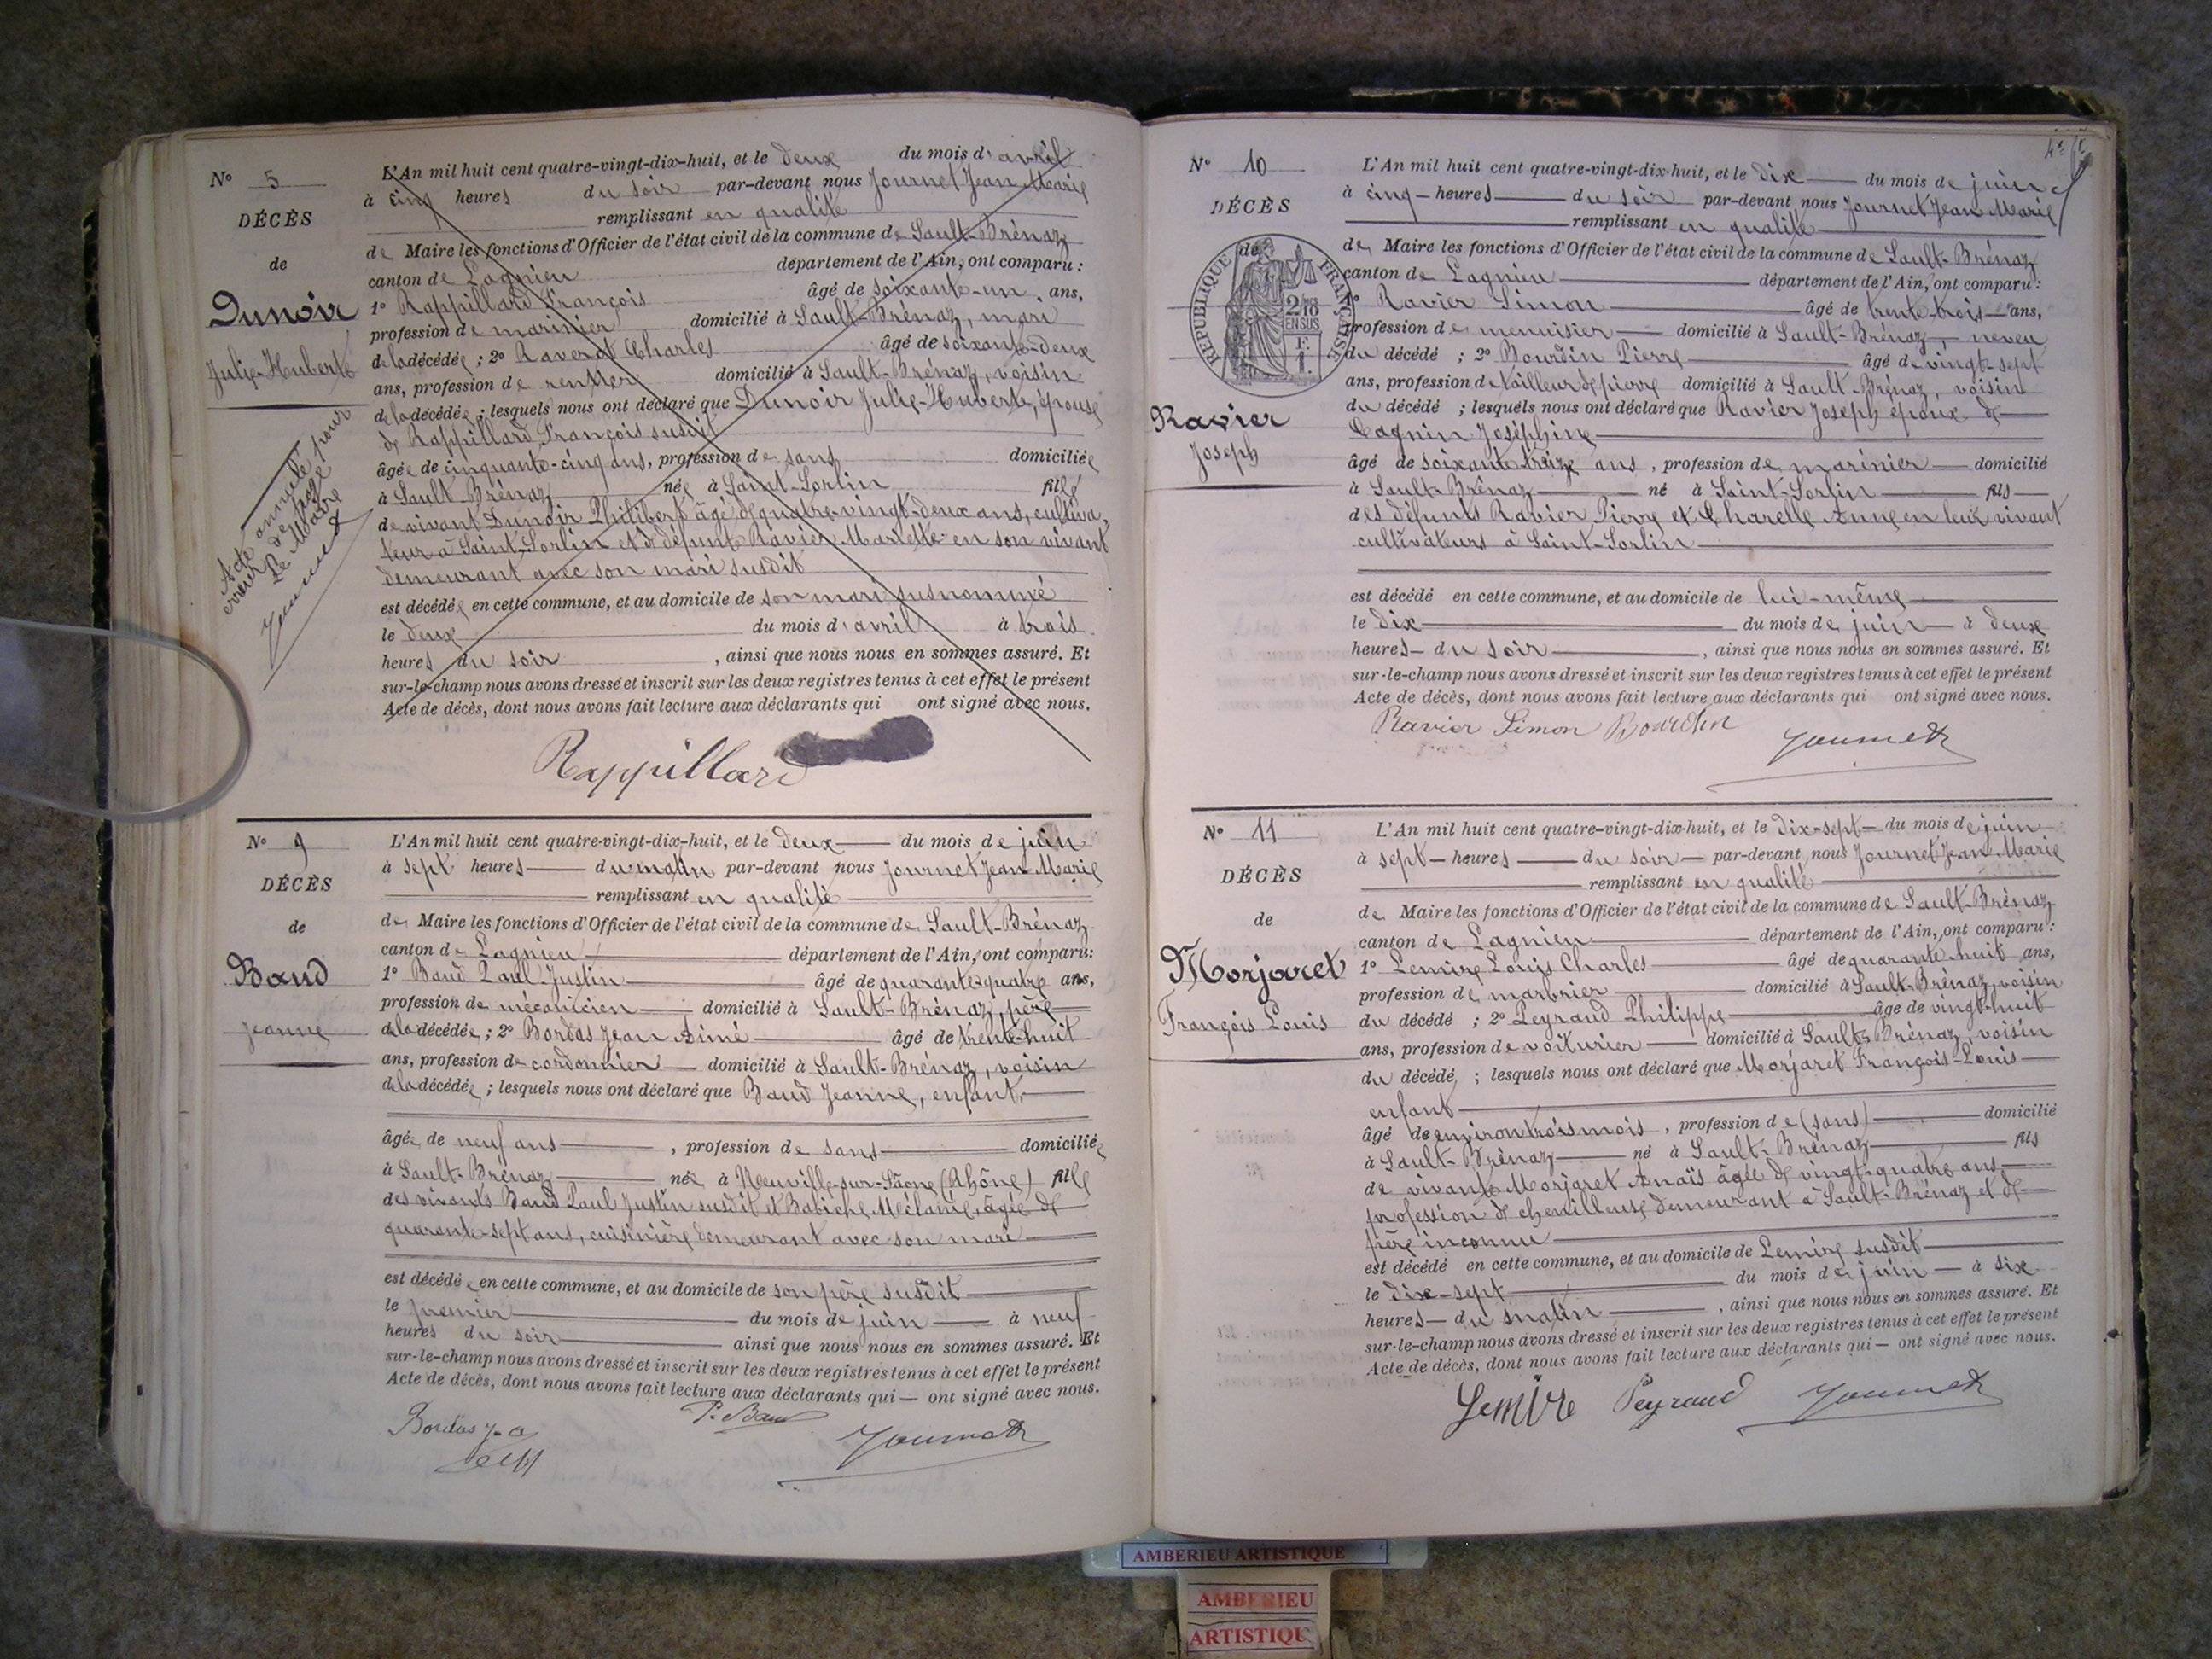 N° 5
DÉCÈS
de
Dunoir
Julie-Huberte
Acte annulé pour
erreur de page
Le Maire
Journet
L'An mil huit cent quatre-vingt-dix-huit, et le deux du mois d'avril
à cinq heures du soir par-devant nous Journet Jean Marie
remplissant en qualité
de Maire les fonctions d'Officier de l'état civil de la commune de Sault-Brénaz
canton de Lagnieu département de l'Ain, ont comparu :
1° Rappillard François âgé de soixante-un ans,
profession de marinier domicilié à Sault-Brénaz, mari
de la décédée ; 2° Raverot Charles âgé de soixante-deux
ans, profession de rentier domicilié à Sault-Brénaz, voisin
de la décédée ; lesquels nous ont déclaré que Dunoir Julie-Huberte, épouse
de Rappillard François susdit
âgée de cinquante-cinq ans, profession de sans domiciliée
à Sault-Brénaz née à Saint-Sorlin fille
de vivant Dunoir Philibert âgé de quatre-vingt-deux ans, cultiva-
teur à Saint-Sorlin et de défunte Ravier Mariette en son vivant
demeurant avec son mari susdit
est décédée en cette commune, et au domicile de son mari susnommé
le deux du mois d'avril à trois
heures du soir , ainsi que nous nous en sommes assuré. Et
sur-le-champ nous avons dressé et inscrit sur les deux registres tenus à cet effet le présent
Acte de décès, dont nous avons fait lecture aux déclarants qui ont signé avec nous.
Rappillard
N° 9
DÉCÈS
de
Baud
Jeanne
L'An mil huit cent quatre-vingt-dix-huit, et le deux du mois de juin
à sept heures du matin par-devant nous Journet Jean Marie
remplissant en qualité
de Maire les fonctions d'Officier de l'état civil de la commune de Sault-Brénaz
canton de Lagnieu département de l'Ain, ont comparu :
1° Baud Paul Justin âgé de quarante quatre ans,
profession de mécanicien domicilié à Sault-Brénaz, père
de la décédée ; 2° Bordas Jean Aimé âgé de trente-huit
ans, profession de cordonnier domicilié à Sault-Brénaz, voisin
de la décédée ; lesquels nous ont déclaré que Baud Jeanne, enfant
âgée de neuf ans , profession de sans domiciliée
à Sault-Brénaz née à Neuville-sur-Saône (Rhône) fille
des vivants Baud Paul Justin susdit et Babiche Mélanie, âgée de
quarante-sept ans, cuisinière demeurant avec son mari
est décédée en cette commune, et au domicile de son père susdit
le premier du mois de juin à neuf
heures du soir ainsi que nous nous en sommes assuré. Et
sur-le-champ nous avons dressé et inscrit sur les deux registres tenus à cet effet le présent
Acte de décès, dont nous avons fait lecture aux déclarants qui — ont signé avec nous.
Bordas J-a P. Baud Journet
N° 10
DÉCÈS
de
RÉPUBLIQUE FRANÇAISE
2/10 EN SUS
1 F.
Ravier
Joseph
L'An mil huit cent quatre-vingt-dix-huit, et le dix du mois de juin
à cinq heures du soir par-devant nous Journet Jean Marie
remplissant en qualité
de Maire les fonctions d'Officier de l'état civil de la commune de Sault-Brénaz
canton de Lagnieu département de l'Ain, ont comparu :
1° Ravier Simon âgé de trente-trois ans,
profession de menuisier domicilié à Sault-Brénaz, neveu
du décédé ; 2° Bourdin Pierre âgé de vingt-sept
ans, profession de tailleur de pierre domicilié à Sault-Brénaz, voisin
du décédé ; lesquels nous ont déclaré que Ravier Joseph époux de
Cagnin Joséphine
âgé de soixante-treize ans, profession de marinier domicilié
à Sault-Brénaz né à Saint-Sorlin fils
des défunts Ravier Pierre et Charelle Anne en leur vivant
cultivateurs à Saint-Sorlin
est décédé en cette commune, et au domicile de lui-même
le dix du mois de juin à deux
heures du soir , ainsi que nous nous en sommes assuré. Et
sur-le-champ nous avons dressé et inscrit sur les deux registres tenus à cet effet le présent
Acte de décès, dont nous avons fait lecture aux déclarants qui ont signé avec nous.
Ravier Simon Bourdin Journet
N° 11
DÉCÈS
de
Morjaret
François Louis
L'An mil huit cent quatre-vingt-dix-huit, et le dix-sept du mois de juin
à sept heures du soir par-devant nous Journet Jean Marie
remplissant en qualité
de Maire les fonctions d'Officier de l'état civil de la commune de Sault-Brénaz
canton de Lagnieu département de l'Ain, ont comparu :
1° Lemire Louis Charles âgé de quarante-huit ans,
profession de marbrier domicilié à Sault-Brénaz, voisin
du décédé ; 2° Peyraud Philippe âgé de vingt-huit
ans, profession de voiturier domicilié à Sault-Brénaz, voisin
du décédé ; lesquels nous ont déclaré que Morjaret François-Louis
enfant
âgé de environ trois mois, profession de (sans) domicilié
à Sault-Brénaz né à Sault-Brénaz fils
de vivante Morjaret Anaïs âgée de vingt-quatre ans
profession de chenilleuse demeurant à Sault-Brénaz et de
père inconnu
est décédé en cette commune, et au domicile de Lemire susdit
le dix-sept du mois de juin à six
heures du matin , ainsi que nous nous en sommes assuré. Et
sur-le-champ nous avons dressé et inscrit sur les deux registres tenus à cet effet le présent
Acte de décès, dont nous avons fait lecture aux déclarants qui — ont signé avec nous.
Lemire Peyraud Journet
AMBERIEU ARTISTIQUE
AMBERIEU
ARTISTIQU